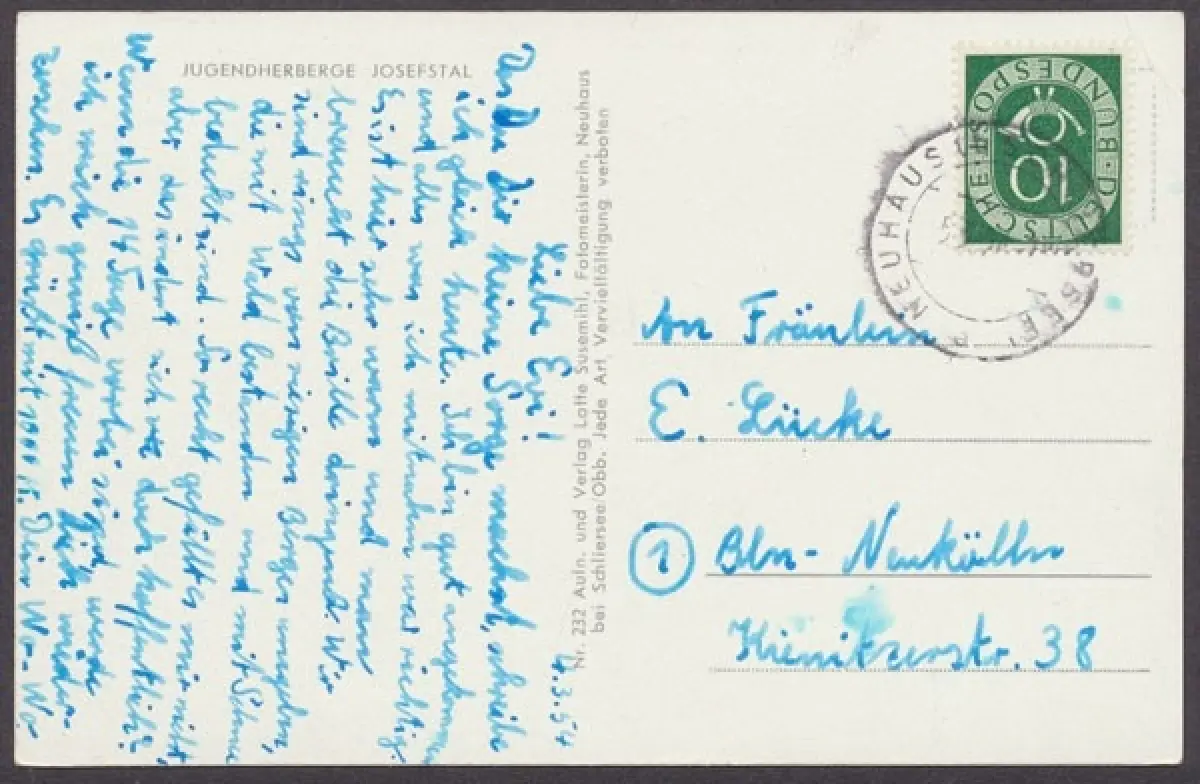 JUGENDHERBERGE JOSEFSTAL
4.3.54
Liebe Evi!
Daß Du Dir keine Sorge machst, schreibe
ich gleich heute. Ich bin gut angekommen
und alles was ich mitnahm war richtig.
Es ist hier sehr warm und man
braucht die Brille dringend. Wir
sind rings von riesigen Bergen umgeben,
die mit Wald bestanden und mit Schnee
bedeckt sind. So recht gefällt es mir nicht,
aber das ändert sich doch hoffentlich?
Wenn die 14 Tage vorbei sind werde
ich mich gewiß freuen Dich wieder-
zusehn. Es grüßt mit 1000 K. Dein Wo-Wo
Nr. 232 Aufn. und Verlag Lotte Susemihl, Fotomeisterin, Neuhaus
bei Schliersee/Obb. Jede Art Vervielfältigung verboten
DEUTSCHE BUNDESPOST
10
NEUHAUS
An Fräulein
E. Lücke
1 Bln-Neukölln
Kienitzerstr. 38